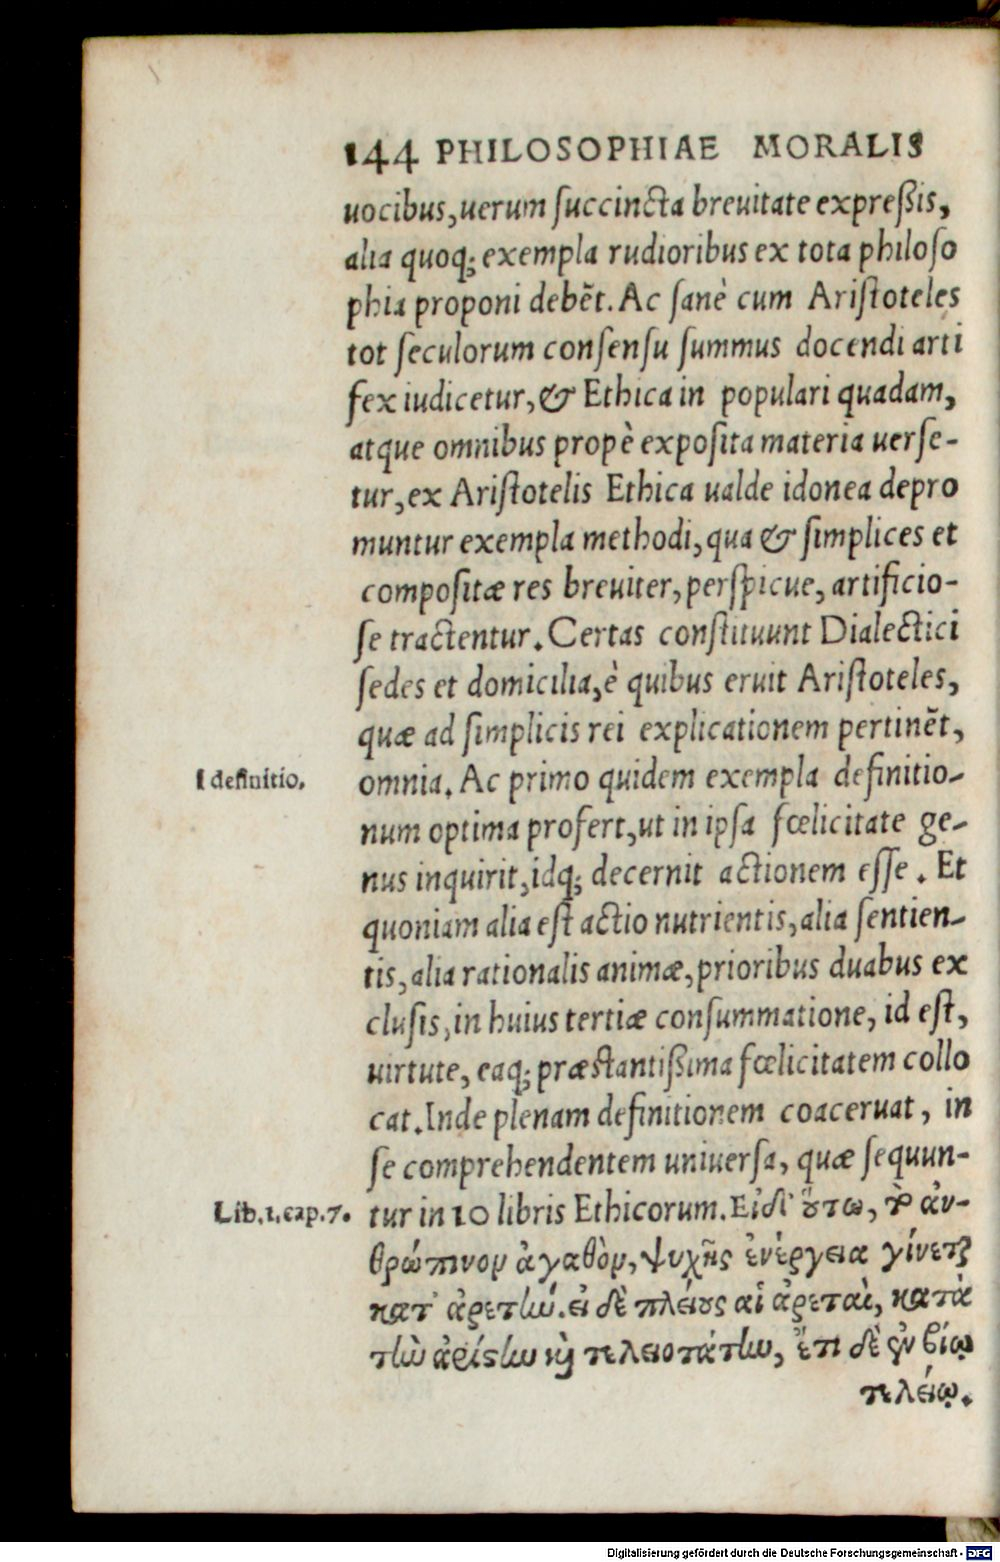 144 PHILOSOPHIAE MORALIS
uocibus, uerum ſuccincta breuitate expreßis,
alia quoq; exempla rudioribus ex tota philoſo
phia proponi debẽt. Ac ſanè cum Ariſtoteles
tot ſeculorum conſenſu ſummus docendi arti
fex iudicetur, & Ethica in populari quadam,
atque omnibus propè expoſita materia uerſe-
tur, ex Ariſtotelis Ethica ualde idonea depro
muntur exempla methodi, qua & ſimplices et
compoſitæ res breuiter, perſpicue, artificio-
ſe tractentur. Certas conſtituunt Dialectici
ſedes et domicilia, è quibus eruit Ariſtoteles,
quæ ad ſimplicis rei explicationem pertinẽt,
I definitio.
omnia. Ac primo quidem exempla definitio-
num optima profert, ut in ipſa fœlicitate ge-
nus inquirit, idq; decernit actionem eſſe. Et
quoniam alia eſt actio nutrientis, alia ſentien-
tis, alia rationalis animæ, prioribus duabus ex
cluſis, in huius tertiæ conſummatione, id eſt,
uirtute, eaq; præstantißima fœlicitatem collo
cat. Inde plenam definitionem coaceruat, in
ſe comprehendentem uniuerſa, quæ ſequun-
Lib. 1. cap. 7.
tur in 10 libris Ethicorum. Εἰ δ' ȣ̓́τω, τὸ ἀν-
θρώπινον ἀγαθὸν, ψυχῆς ἐνέργεια γίνεται
κατ' ἀρετὴν. εἰ δὲ πλείους αἱ ἀρεταὶ, κατὰ
τὴν ἀρίστην καὶ τελειοτάτην, ἔτι δὲ ἐν βίῳ
τελείῳ.
Digitalisierung gefördert durch die Deutsche Forschungsgemeinschaft - DFG